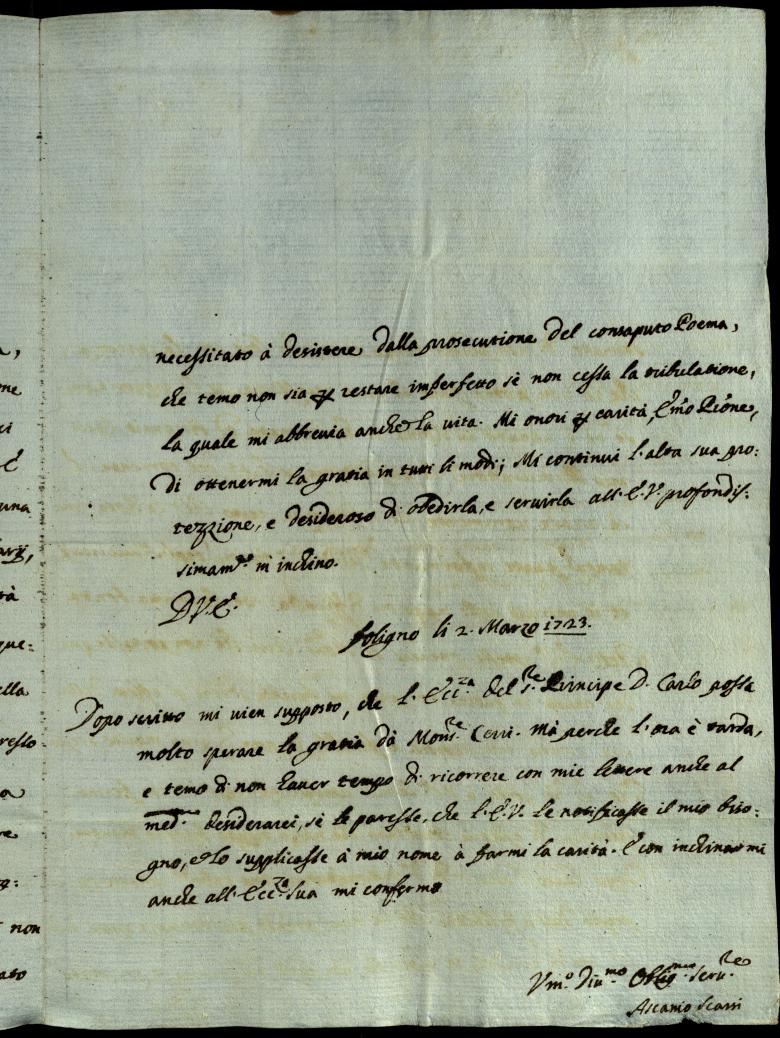 necessitato à desistere dalla prosecutione del consaputo Poema,
che temo non sia p restare imperfetto sè non cessa la tribulatione,
la quale mi abbrevia anche la vita. Mi onori p carità, E͞mo P͞rone,
di ottenermi la gratia in tutti li modi; Mi continui l'alta sua pro:
tezzione, e desideroso di obedirla, e servirla all'E.V. profondis:
simam.te m'inchino.
D.V.E.
Foligno li 2. Marzo 1723.
Dopo scritto mi vien supposto, che l'Ecc.za del S.re Principe D. Carlo possa
molto sperare la gratia dà Mons.re Cerri. mà perche l'ora è tarda,
e temo di non haver tempo di ricorrere con mie lettere anche al
med.o desiderarei, sè le paresse, che l'E.V. le notificasse il mio biso:
gno, e lo supplicasse à mio nome à farmi la carità. E con inchinarmi
anche all'Ecc.za Sua mi confermo
Vm.o Div.mo Oblig.mo Serv.re
Ascanio Scarsi
ne
ci
E
una
arij,
tà
que:
ella
presso
a
re
non
ato